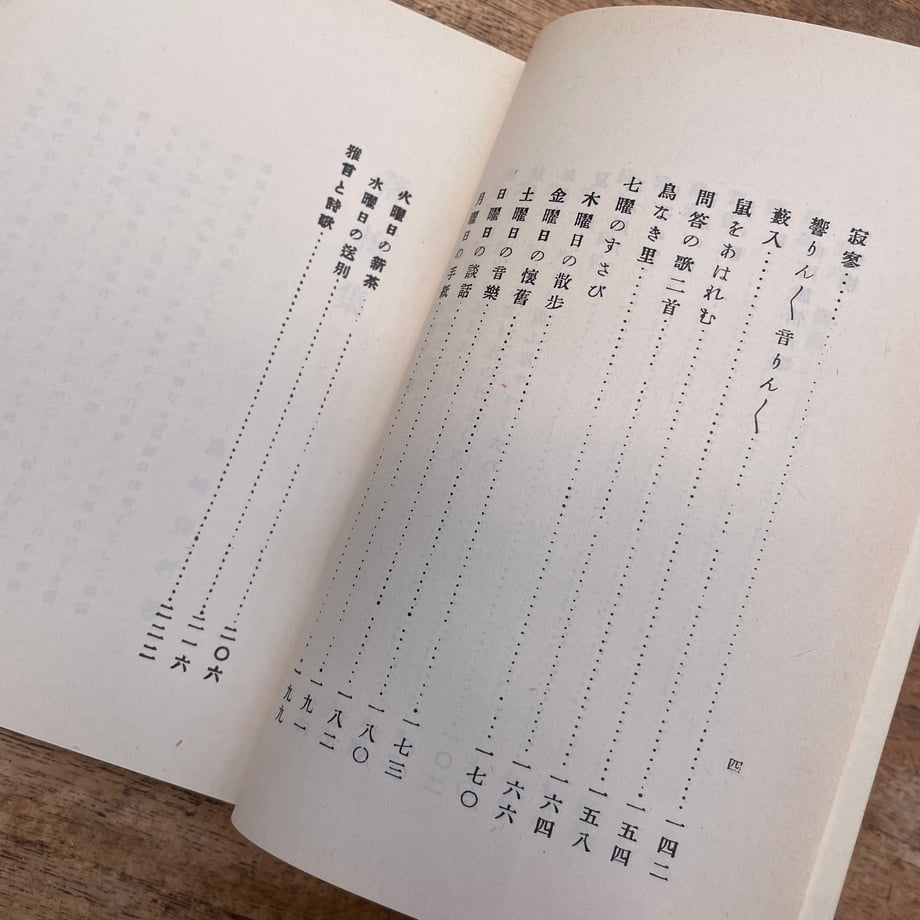 寂寥……一四二
響りん〱音りん〱……一五四
藪入……一五八
鼠をあはれむ……一六四
問答の歌二首……一六六
鳥なき里……一七〇
七曜のすさび
木曜日の散歩……一七三
金曜日の懷舊……一八〇
土曜日の音樂……一八二
日曜日の談話……一九一
月曜日の手紙……一九九
四
火曜日の新茶……二〇六
水曜日の送別……二一六
雅言と詩歌……二二二